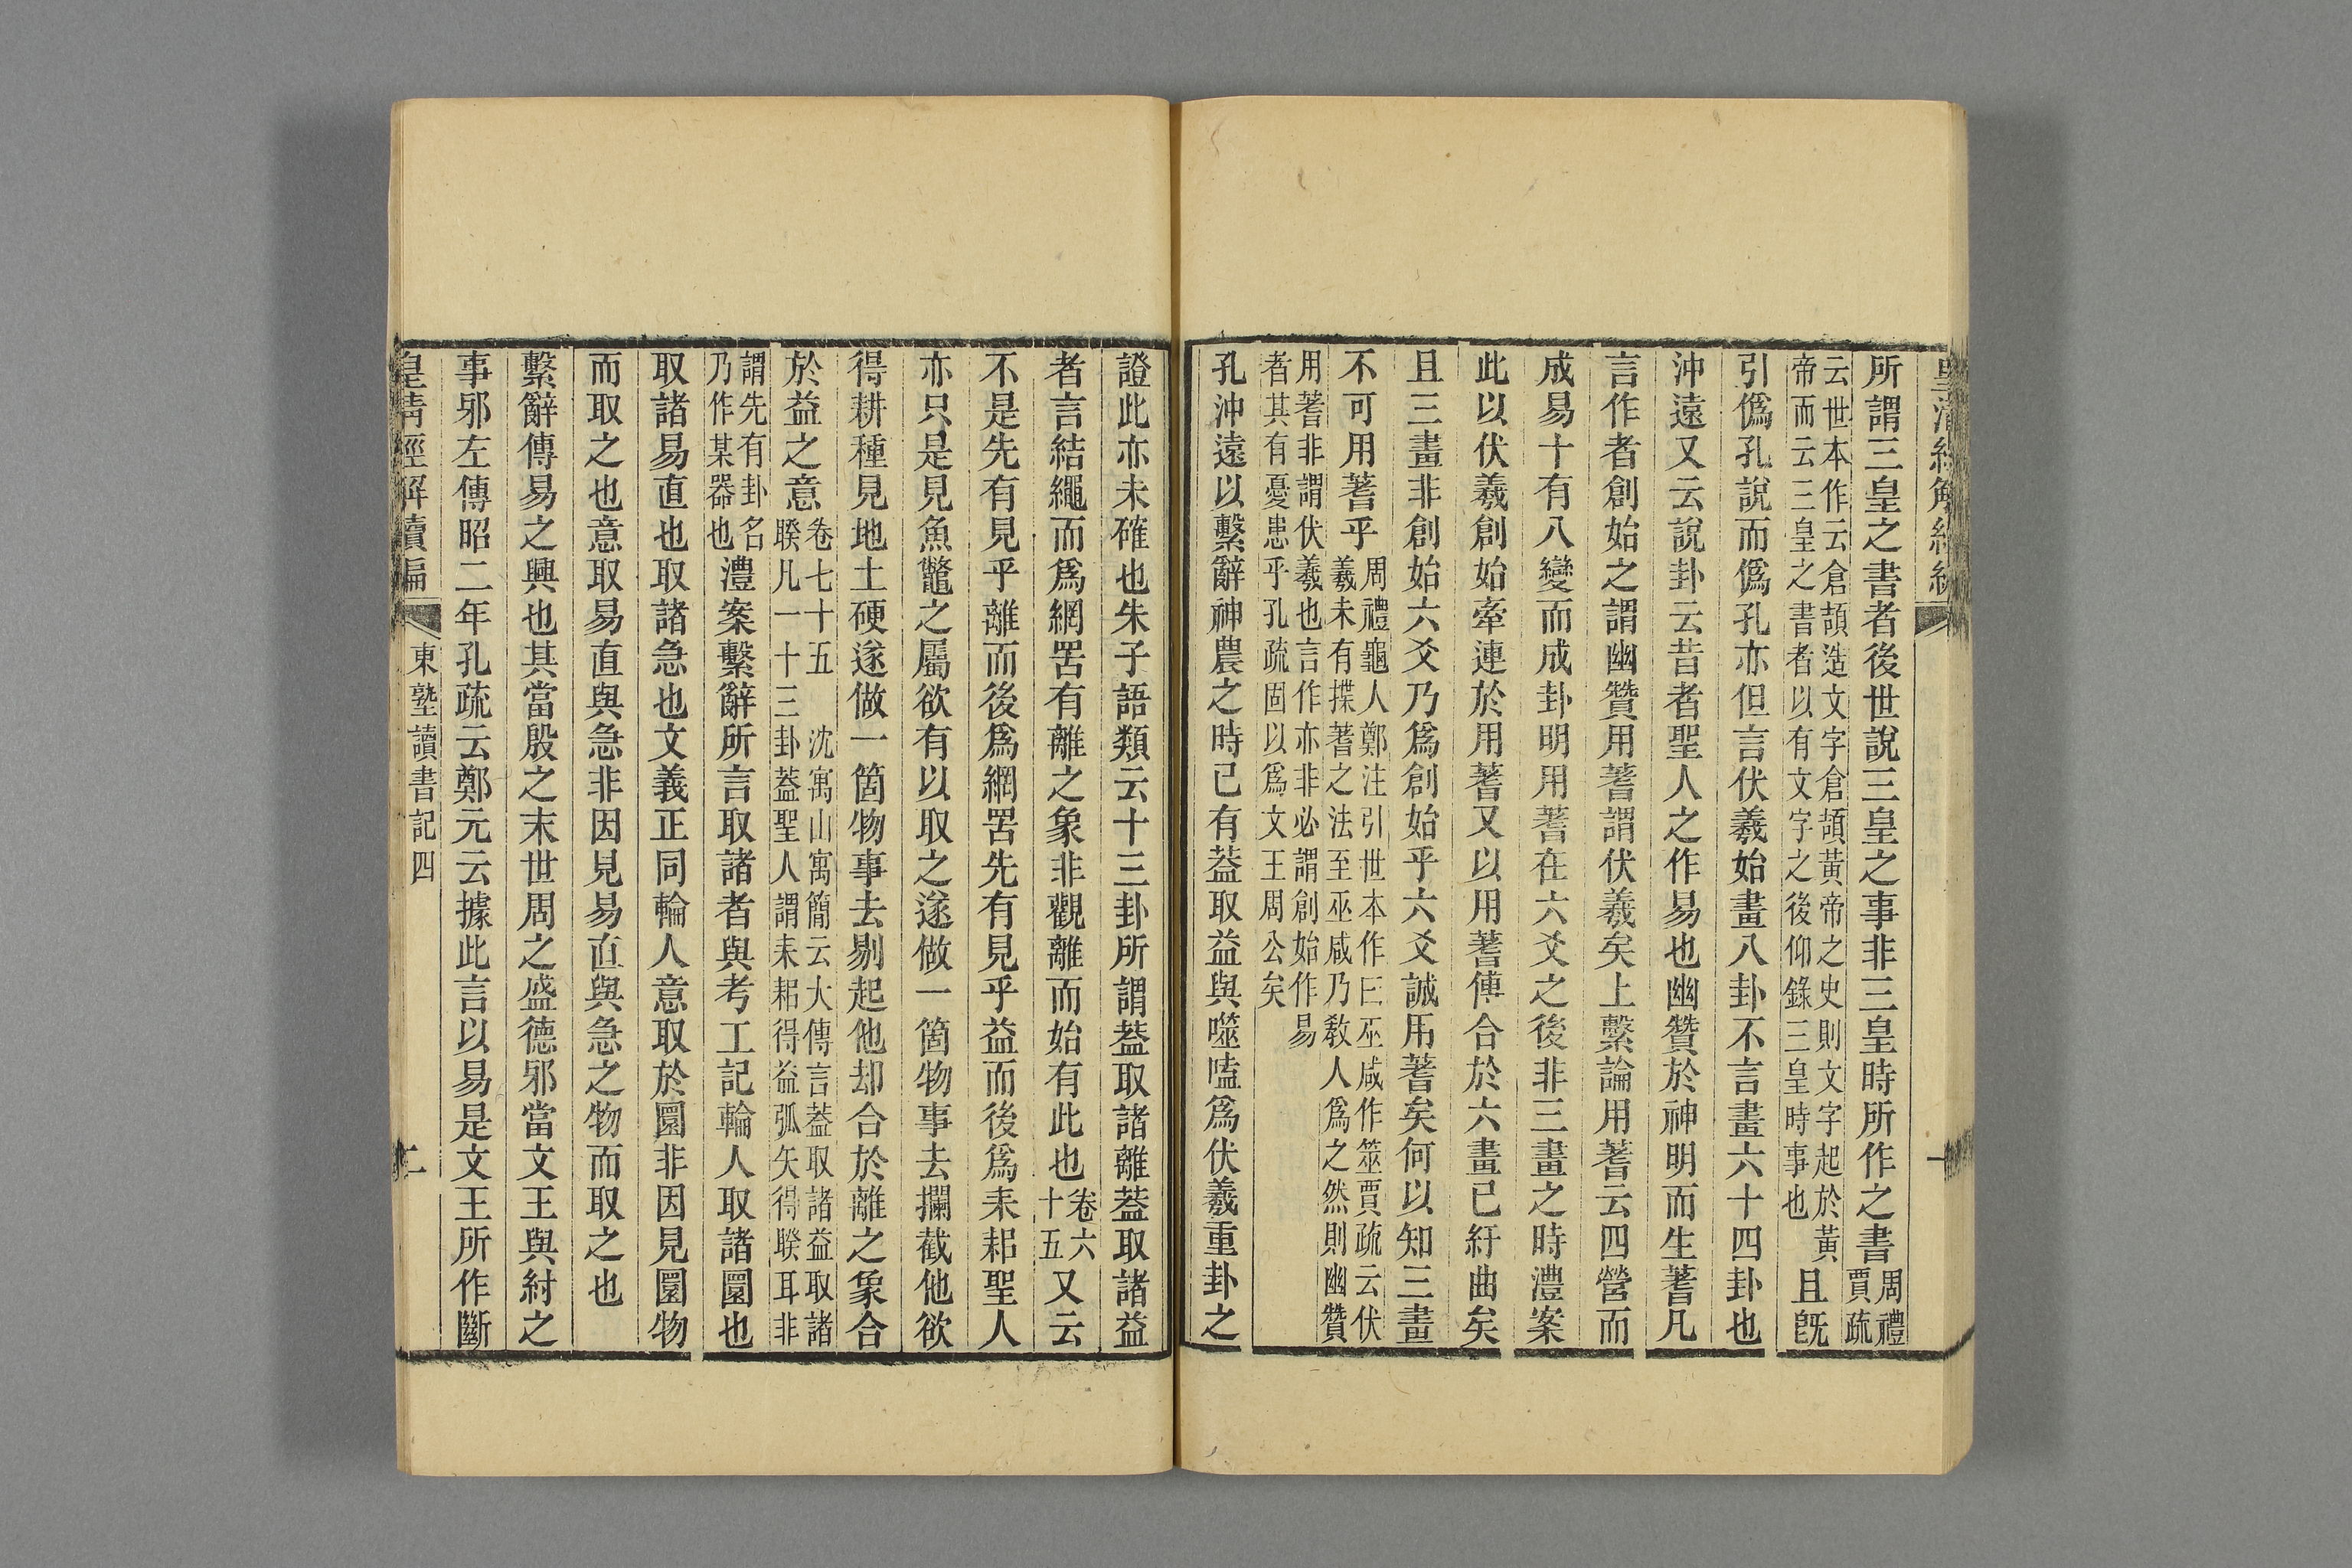 所謂三皇之書者後世說三皇之事非三皇時所作之書周禮賈疏
云世本作云倉頡造文字倉頡黃帝之史則文字起於黃帝而云三皇之書者以有文字之後仰錄三皇時事也且旣
引僞孔說而僞孔亦但言伏羲始畫八卦不言畫六十四卦也
沖遠又云說卦云昔者聖人之作易也幽贊於神明而生蓍凡
言作者創始之謂幽贊用蓍謂伏羲矣上繫論用蓍云四營而
成易十有八變而成卦明用蓍在六爻之後非三畫之時澧案
此以伏羲創始牽連於用蓍又以用蓍傅合於六畫已紆曲矣
且三畫非創始六爻乃爲創始乎六爻誠用蓍矣何以知三畫
不可用蓍乎周禮龜人鄭注引世本作曰巫咸作筮賈疏云伏羲未有揲蓍之法至巫咸乃敎人爲之然則幽贊
用蓍非謂伏羲也言作亦非必謂創始作易者其有憂患乎孔疏固以爲文王周公矣
孔沖遠以繫辭神農之時已有葢取益與噬嗑爲伏羲重卦之
證此亦未確也朱子語類云十三卦所謂葢取諸離葢取諸益
者言結繩而爲網罟有離之象非觀離而始有此也卷六十五又云
不是先有見乎離而後爲網罟先有見乎益而後爲耒耜聖人
亦只是見魚鼈之屬欲有以取之遂做一箇物事去攔截他欲
得耕種見地土硬遂做一箇物事去剔起他却合於離之象合
於益之意卷七十五　沈寓山寓簡云大傳言葢取諸益取諸睽凡一十三卦葢聖人謂耒耜得益弧矢得睽耳非
謂先有卦名乃作某器也澧案繫辭所言取諸者與考工記輪人取諸圜也
取諸易直也取諸急也文義正同輪人意取於圜非因見圜物
而取之也意取易直與急非因見易直與急之物而取之也
繫辭傳易之興也其當殷之末世周之盛德邪當文王與紂之
事邪左傳昭二年孔疏云鄭元云據此言以易是文王所作斷
皇清經解續編　東塾讀書記四　二